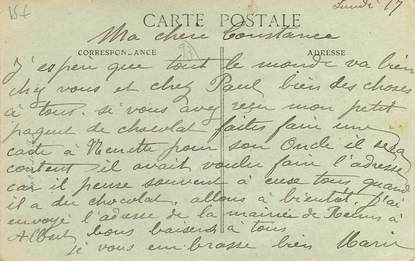 Lundi 17
CARTE POSTALE
Ma chere Constance
CORRESPONDANCE
ADRESSE
J'espère que tout le monde va bien
chez vous et chez Paul bien des choses
à tous. si vous avez reçu mon petit
paquet de chocolat faites faire une
carte à pour son Oncle il sera
content, il avait voulu faire l'adresse
car il pense souvent à eux tous quand
il a du chocolat. allons à bientôt. j'ai
envoyé l'adresse de la mairie de Reims à
Albert bons baisers à tous
Je vous embrasse bien Marie